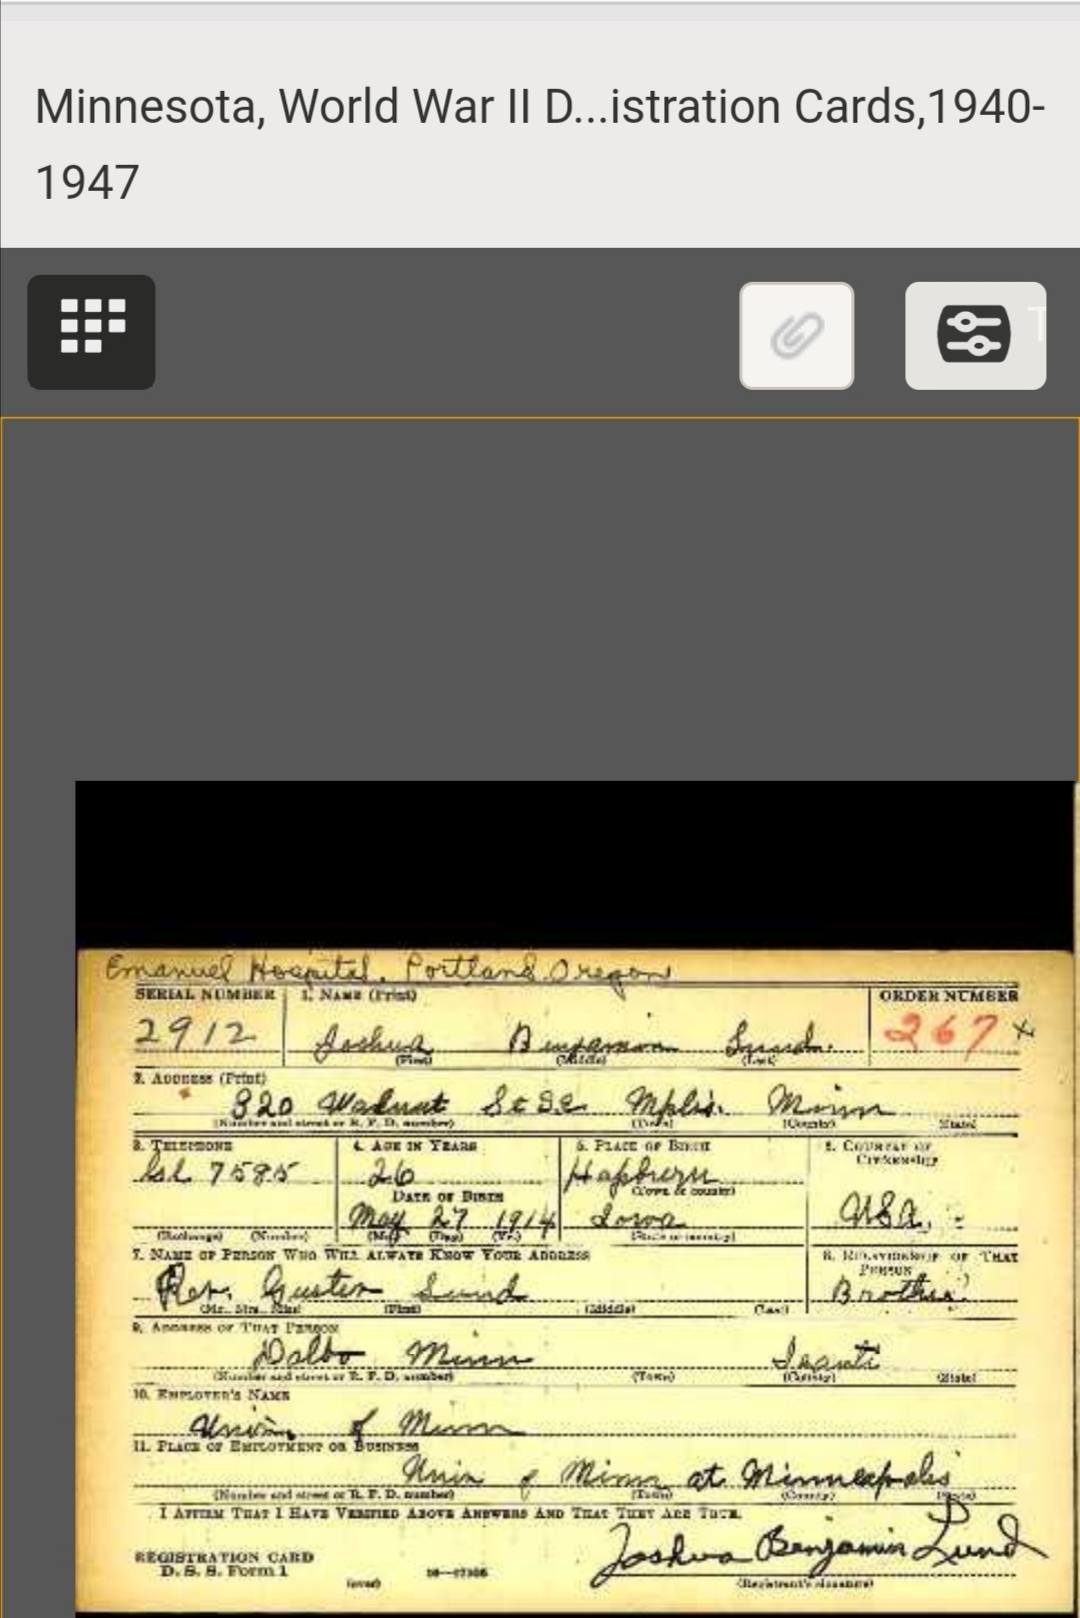 Minnesota, World War II D...istration Cards,1940-
1947
T
Emanuel Hospital, Portland Oregon
SERIAL NUMBER 1. NAME (Print) ORDER NUMBER
2912 Joshua Benjamin Lund. 267 x
(First) (Middle) (Last)
2. ADDRESS (Print)
320 Walnut St S.E. Mpls. Minn
(Number and street or R. F. D. number) (Town) (County) (State)
3. TELEPHONE 4. AGE IN YEARS 5. PLACE OF BIRTH 6. COUNTRY OF CITIZENSHIP
7585 26 Hapburn
DATE OF BIRTH (Town or county)
May 27 1914 Iowa U.S.A.
(Exchange) (Number) (Mo.) (Day) (Yr.) (State or country)
7. NAME OF PERSON WHO WILL ALWAYS KNOW YOUR ADDRESS 8. RELATIONSHIP OF THAT PERSON
Rev. Gustav Lund Brother
(Mr., Mrs., Miss) (First) (Middle) (Last)
9. ADDRESS OF THAT PERSON
Dalbo Minn Isanti
(Number and street or R. F. D. number) (Town) (County) (State)
10. EMPLOYER'S NAME
Univ. of Minn
11. PLACE OF EMPLOYMENT OR BUSINESS
Univ of Minn at Minneapolis
(Number and street or R. F. D. number) (Town) (County) (State)
I AFFIRM THAT I HAVE VERIFIED ABOVE ANSWERS AND THAT THEY ARE TRUE.
Joshua Benjamin Lund
REGISTRATION CARD
D. S. S. Form 1 (over) (Registrant's signature)